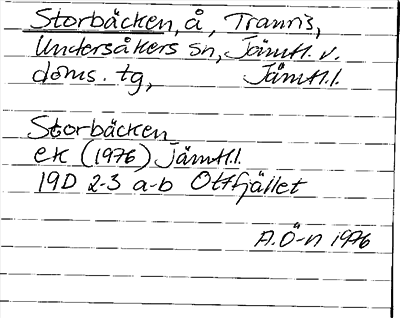 Storbäcken, å, Tranris,
Undersåkers sn, Jämtl. v.
doms. tg, Jämtl.l.
Storbäcken
ek (1976) Jämtl.l.
19D 2-3 a-b Ottfjället
A.Ö-n 1976